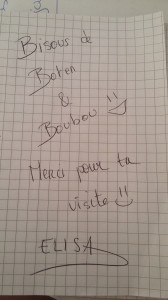 Bisous de
Boten
&
Boubou !!
Merci pour ta
visite !!
ELISA